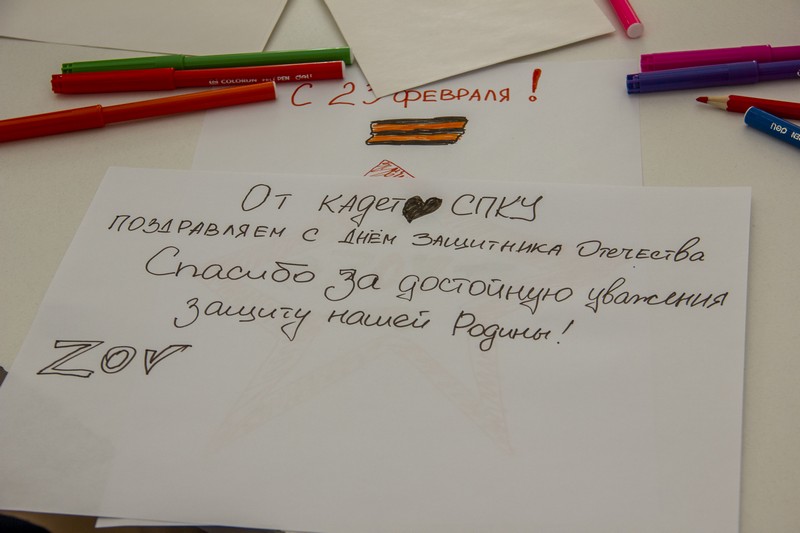 COLORUN DELI
С 23 ФЕВРАЛЯ!
От кадет СПКУ
ПОЗДРАВЛЯЕМ С ДНЁМ ЗАЩИТНИКА ОТЕЧЕСТВА
Спасибо за достойную уважения
защиту нашей Родины!
ZOV